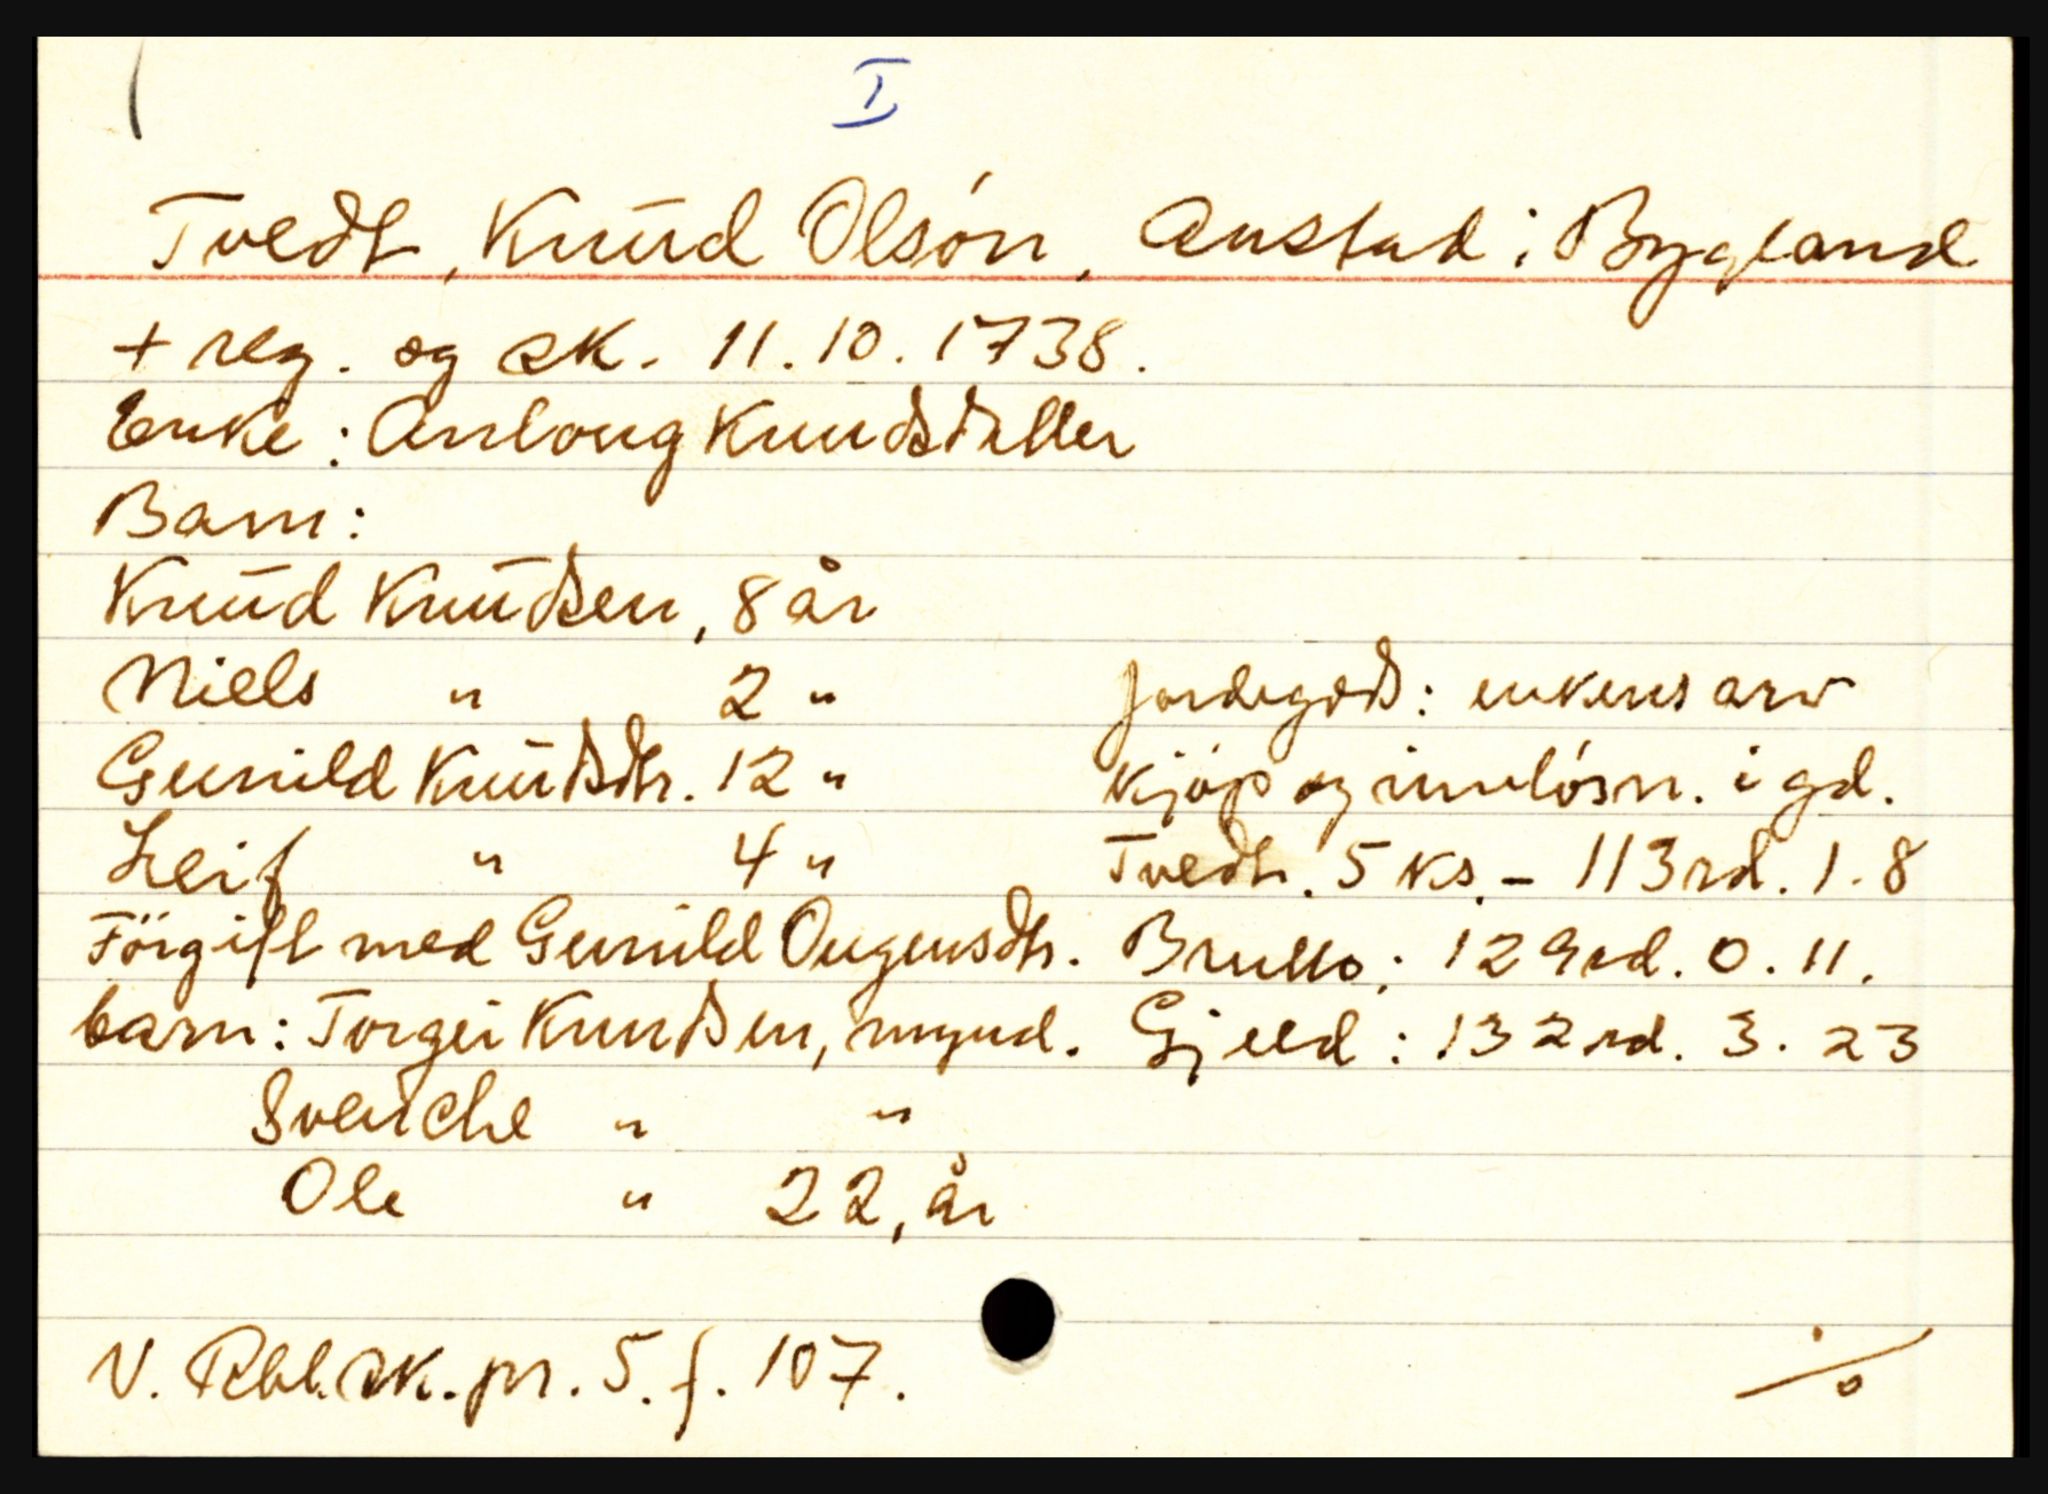 I
Tvedt, Knud Olsón, Austad i Bygland
+ reg. og sk. 11.10.1738.
Enke: Anloug Knudsdatter
Barn:
Knud Knudsen, 8 år
Niels " 2 "
Gunild Knudsdtr. 12 "
Leif " 4 "
Förgift med Gunild Ougensdtr.
barn: Torgei Knudsen, mynd.
Sveiche " "
Ole " 22, år
jordegods: enkens arv
kjóp og innlósn. i gd.
Tvedt. 5 ks. - 113 rd. 1. 8
Brutto: 129 rd. 0. 11.
Gjeld: 132 rd. 3. 23
V. Rbl. sk. pr. 5. f. 107.